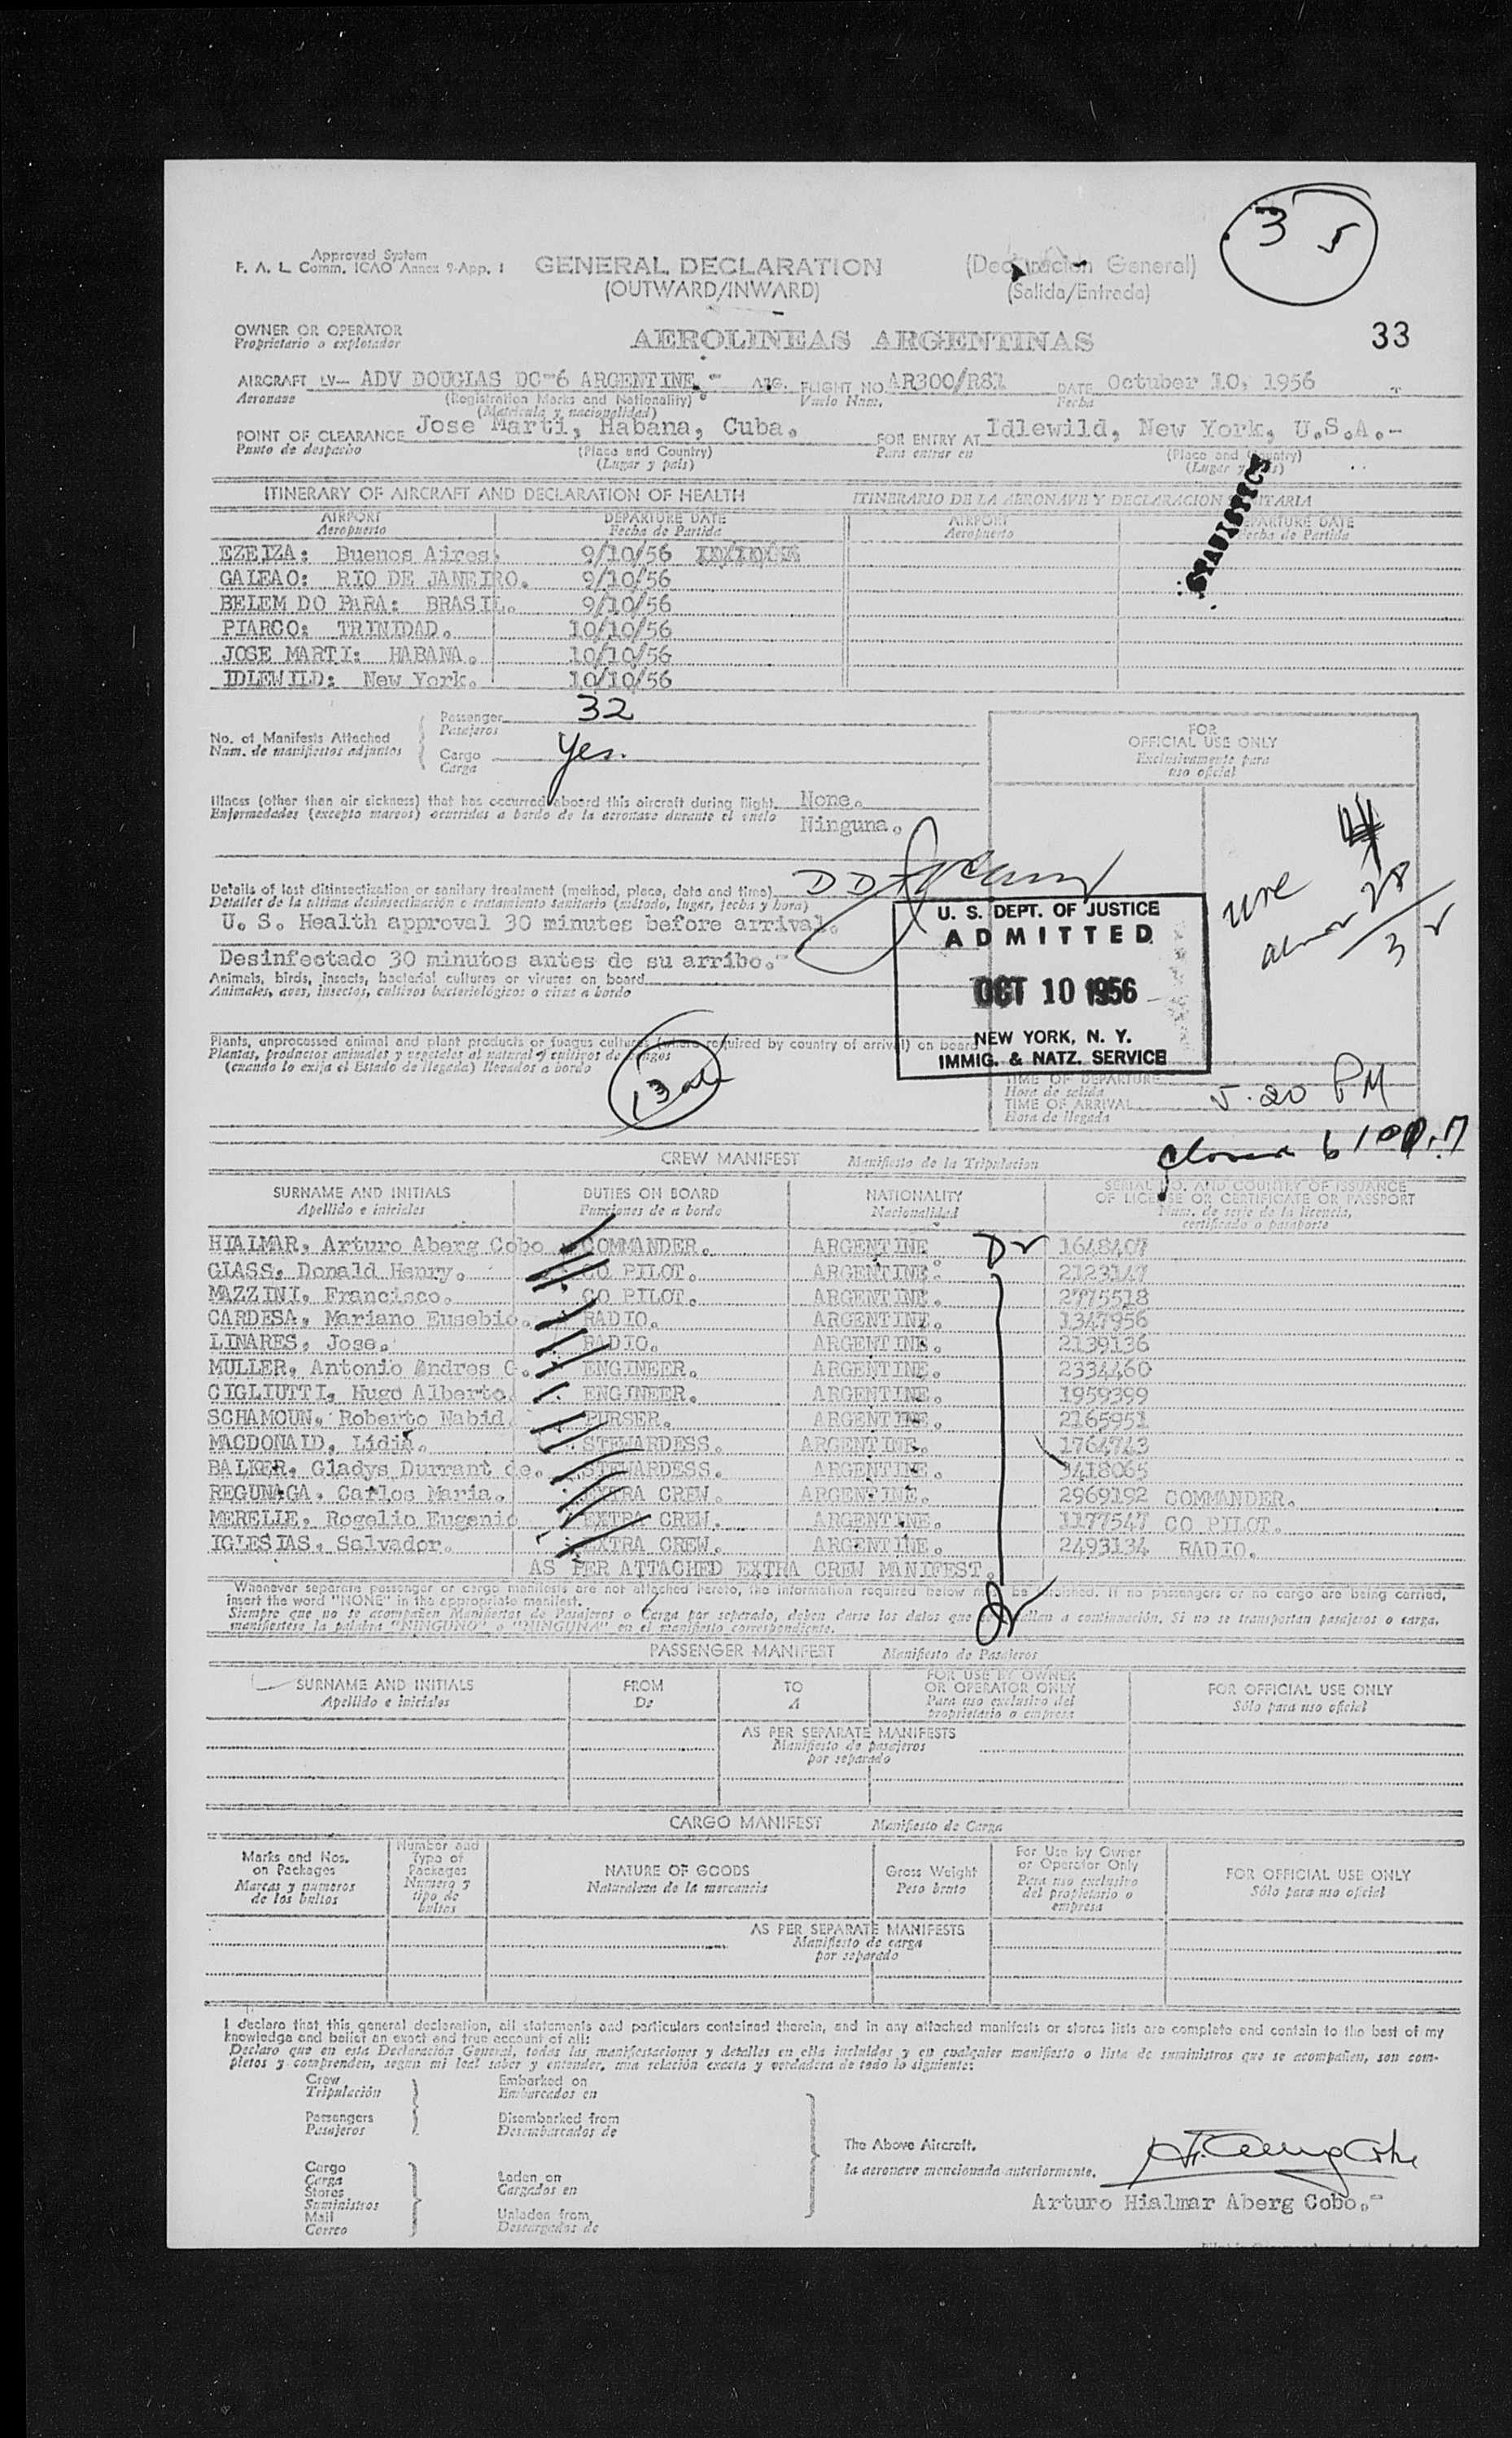 3 5
Approved System
F. A. L. Comm. ICAO Annex 9-App. 1
GENERAL DECLARATION
(Declaracion General)
(OUTWARD/INWARD)
(Salida/Entrada)
OWNER OR OPERATOR
Proprietario o explotador
AEROLINEAS ARGENTINAS
33
AIRCRAFT LV- ADV DOUGLAS DC-6 ARGENTINE.- FLIGHT NO AR300/R81 DATE October 10, 1956
Aeronave (Registration Marks and Nationality) Vuelo Num. Fecha
(Matricula y nacionalidad)
POINT OF CLEARANCE Jose Marti, Habana, Cuba. FOR ENTRY AT Idlewild, New York, U.S.A.-
Punto de despacho (Place and Country) Para entrar en (Place and Country)
(Lugar y pais) (Lugar y pais)
STATISTICS
ITINERARY OF AIRCRAFT AND DECLARATION OF HEALTH ITINERARIO DE LA AERONAVE Y DECLARACION SANITARIA
AIRPORT DEPARTURE DATE AIRPORT DEPARTURE DATE
Aeropuerto Fecha de Partida Aeropuerto Fecha de Partida
EZEIZA: Buenos Aires. 9/10/56
GALEAO: RIO DE JANEIRO. 9/10/56
BELEM DO PARA: BRASIL. 9/10/56
PIARCO: TRINIDAD. 10/10/56
JOSE MARTI: HABANA. 10/10/56
IDLEWILD: New York. 10/10/56
No. of Manifests Attached
Num. de manifiestos adjuntos
Passenger 32
Pasajeros
Cargo Yes.
Carga
FOR
OFFICIAL USE ONLY
Exclusivamente para
uso oficial
Illness (other than air sickness) that has occurred aboard this aircraft during flight None.
Enfermedades (excepto mareos) ocurridas a bordo de la aeronave durante el vuelo Ninguna.
Details of last disinsectization or sanitary treatment (method, place, date and time)
Detalles de la ultima desinsectinación o tratamiento sanitario (método, lugar, fecha y hora)
U. S. Health approval 30 minutes before arrival.
Desinfectado 30 minutos antes de su arribo.-
Animals, birds, insects, bacterial cultures or viruses on board
Animales, aves, insectos, cultivos bacteriológicos o virus a bordo
U. S. DEPT. OF JUSTICE
ADMITTED
OCT 10 1956
NEW YORK, N. Y.
IMMIG. & NATZ. SERVICE
28
32
Plants, unprocessed animal and plant products or fungus cultures (where required by country of arrival) on board
Plantas, productos animales y vegetales al natural y cultivos de hongos
(cuando lo exija el Estado de llegada) llevados a bordo
13
TIME OF DEPARTURE
Hora de salida
TIME OF ARRIVAL 5.20 PM
Hora de llegada
CREW MANIFEST Manifiesto de la Tripulacion
SURNAME AND INITIALS DUTIES ON BOARD NATIONALITY SERIAL NO. AND COUNTRY OF ISSUANCE
OF LICENSE OR CERTIFICATE OR PASSPORT
Apellido e iniciales Funciones de a bordo Nacionalidad Num. de serie de la licencia,
certificado o pasaporte
HIALMAR, Arturo Aberg Cobo COMMANDER. ARGENTINE 1648407
GLASS, Donald Henry. CO PILOT. ARGENTINE. 2123147
MAZZINI, Francisco. CO PILOT. ARGENTINE. 2775518
CARDESA, Mariano Eusebio. RADIO. ARGENTINE. 1347956
LINARES, Jose. RADIO. ARGENTINE. 2139136
MULLER, Antonio Andres G. ENGINEER. ARGENTINE. 2334460
GIGLIUTTI, Hugo Alberto. ENGINEER. ARGENTINE. 1959399
SCHAMOUN, Roberto Nabid. PURSER. ARGENTINE. 2165951
MACDONALD, Lidia. STEWARDESS. ARGENTINE. 1764743
BALKER, Gladys Durrant de. STEWARDESS. ARGENTINE. 3418065
REGUNAGA. Carlos Maria. EXTRA CREW. ARGENTINE. 2969192 COMMANDER.
MERELLE, Rogelio Eugenio EXTRA CREW. ARGENTINE. 1177547 CO PILOT.
IGLESIAS, Salvador. EXTRA CREW. ARGENTINE. 2493134 RADIO.
AS PER ATTACHED EXTRA CREW MANIFEST.
Whenever separate passenger or cargo manifests are not attached hereto, the information required below must be furnished. If no passengers or no cargo are being carried,
insert the word "NONE" in the appropriate manifest.
Siempre que no se acompañen Manifiestos de Pasajeros o Carga por separado, deben darse los datos que se detallan a continuación. Si no se transportan pasajeros o carga,
manifiestese la palabra "NINGUNO" o "NINGUNA" en el manifiesto correspondiente.
PASSENGER MANIFEST Manifiesto de Pasajeros
SURNAME AND INITIALS FROM TO FOR USE BY OWNER
OR OPERATOR ONLY FOR OFFICIAL USE ONLY
Apellido e iniciales De A Para uso exclusivo del
propietario o empresa Sólo para uso oficial
AS PER SEPARATE MANIFESTS
Manifiesto de pasajeros
por separado
CARGO MANIFEST Manifiesto de Carga
Marks and Nos.
on Packages
Marcas y numeros
de los bultos
Number and
Type of
Packages
Numero y
tipo de
bultos
NATURE OF GOODS
Naturaleza de la mercancia
Gross Weight
Peso bruto
For Use by Owner
or Operator Only
Para uso exclusivo
del propietario o
empresa
FOR OFFICIAL USE ONLY
Sólo para uso oficial
AS PER SEPARATE MANIFESTS
Manifiesto de carga
por separado
I declare that this general declaration, all statements and particulars contained therein, and in any attached manifests or stores lists are complete and contain to the best of my
knowledge and belief an exact and true account of all:
Declaro que en esta Declaración General, todas las manifestaciones y detalles en ella incluidos y en cualquier manifiesto o lista de suministros que se acompañen, son com-
pletos y comprenden, segun mi leal saber y entender, una relación exacta y verdadera de todo lo siguiente:
Crew Embarked on
Tripulación Embarcados en
Passengers Disembarked from
Pasajeros Desembarcados de
The Above Aircraft.
la aeronave mencionada anteriormente.
Cargo
Carga Laden on
Stores Cargados en
Suministros
Mail Unladen from
Correo Descargados de
Arturo Hialmar Aberg Cobo.-